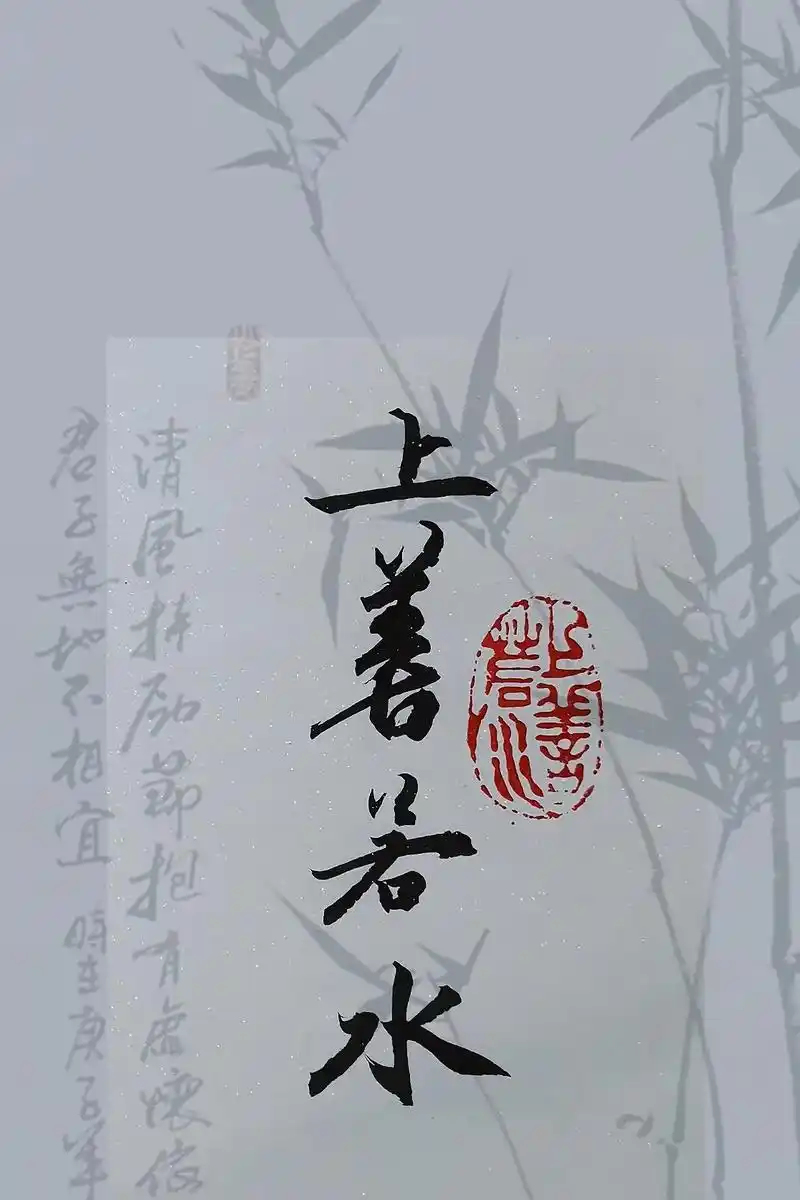 上善
若水
上善若水
清風節抱有虛懷
君子無地不相宜 時在庚子年